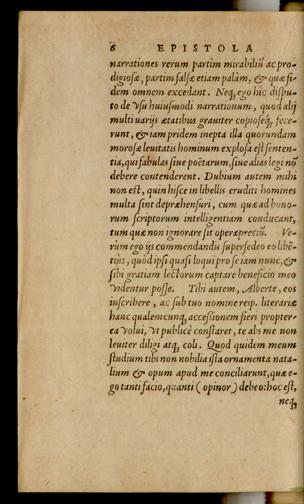 6 EPISTOLA
narrationes rerum partim mirabiliũ ac pro-
digiosæ, partim falsæ etiam palàm, & quæ fi-
dem omnem excedant. Neq, ego hic dispu-
to de vsu huiusmodi narrationum, quod alij
multi uarijs ætatibus grauiter copioseq́, fece-
runt, & iam pridem inepta illa quorundam
morosæ leuitatis hominum explosa est senten-
tia, qui fabulas siue poëtarum, siue alias legi nõ
debere contenderent. Dubium autem mihi
non est, quin hisce in libellis eruditi homines
multa sint depræhensuri, cum quæ ad bono-
rum scriptorum intelligentiam conducant,
tum quæ non ignorare sit operæpreciũ. Ve-
rùm ego ijs commendandis supersedeo eo libẽ-
tiùs, quòd ipsi quasi loqui pro se iam nunc, &
sibi gratiam lectorum captare beneficio meo
videntur posse. Tibi autem, Alberte, eos
inscribere, ac sub tuo nomine reip. literariæ
hanc qualemcunq, accessionem fieri propter-
ea volui, vt publicè constaret, te abs me non
leuiter diligi atq, coli. Quod quidem meum
studium tibi non nobilia ista ornamenta nata-
lium & opum apud me conciliarunt, quæ e-
go tanti facio, quanti (opinor) debeo: hoc est,
neq,